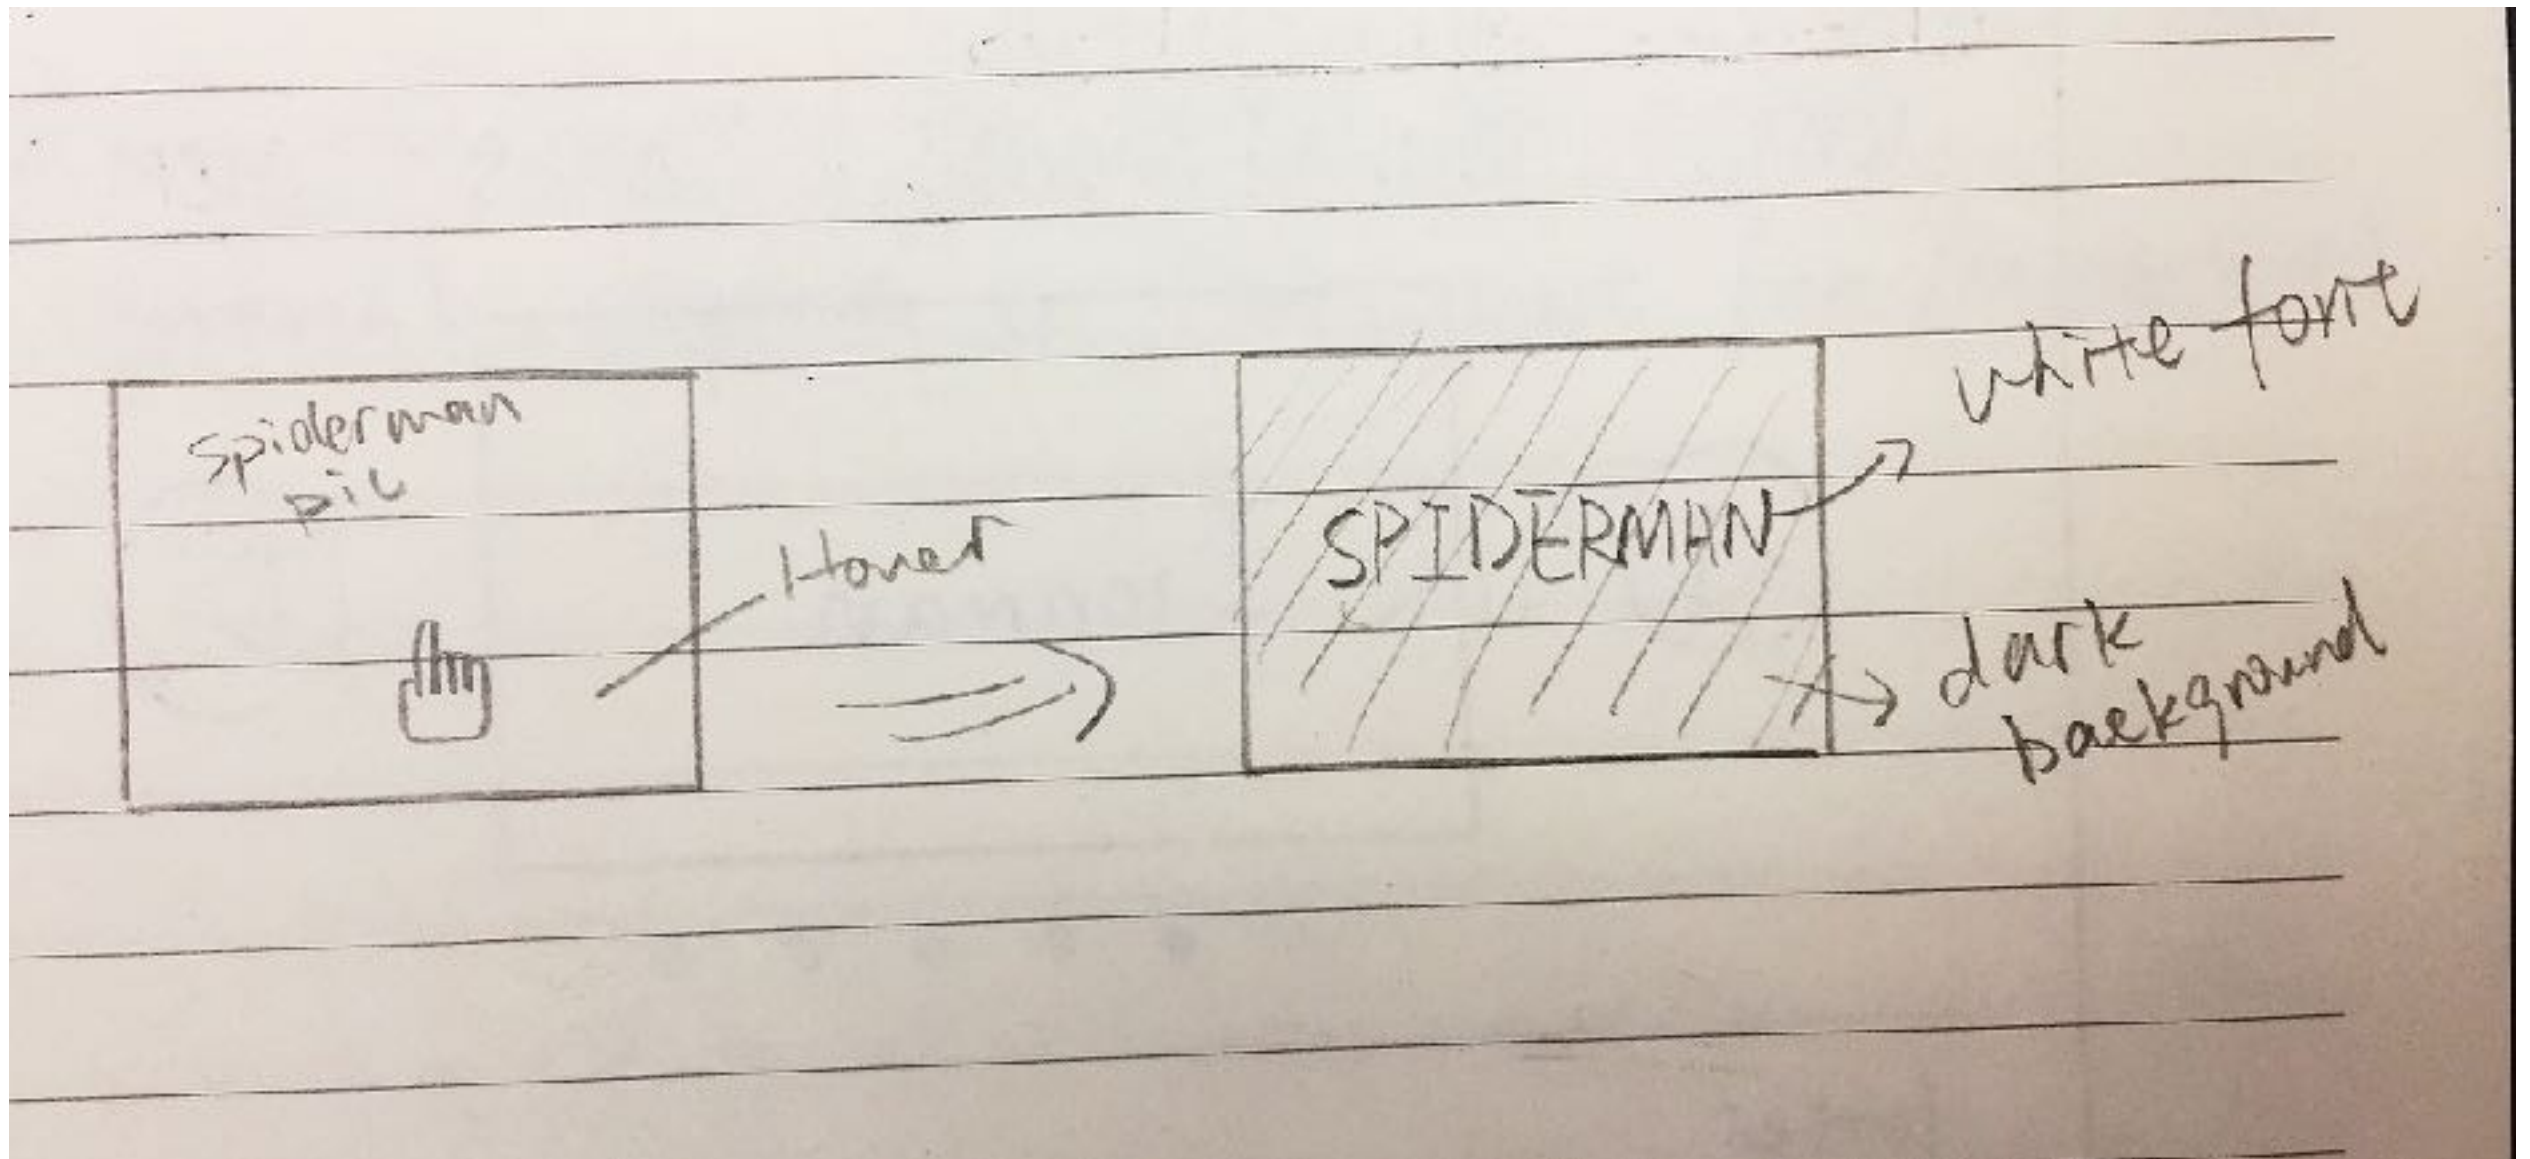 spiderman
pic
Hover
SPIDERMAN
white font
dark
background